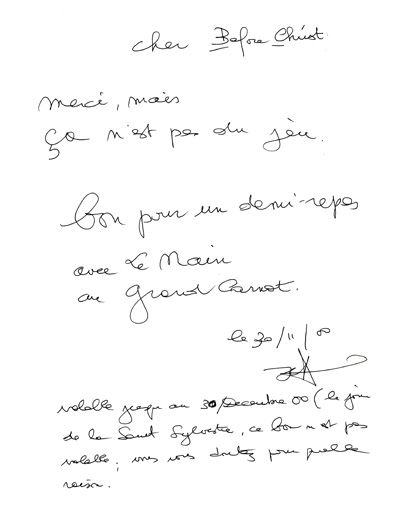 cher Before Christ
merci, mais
ça n'est pas du jeu.
bon pour un demi-repas
avec Le Main
au Grand Carnot.
le 30/11/00
valable jusqu'au 30 Decembre 00 (le jour
de la Saint Sylvestre, ce bon n'est pas
valable, vous vous doutez pour quelle
raison.